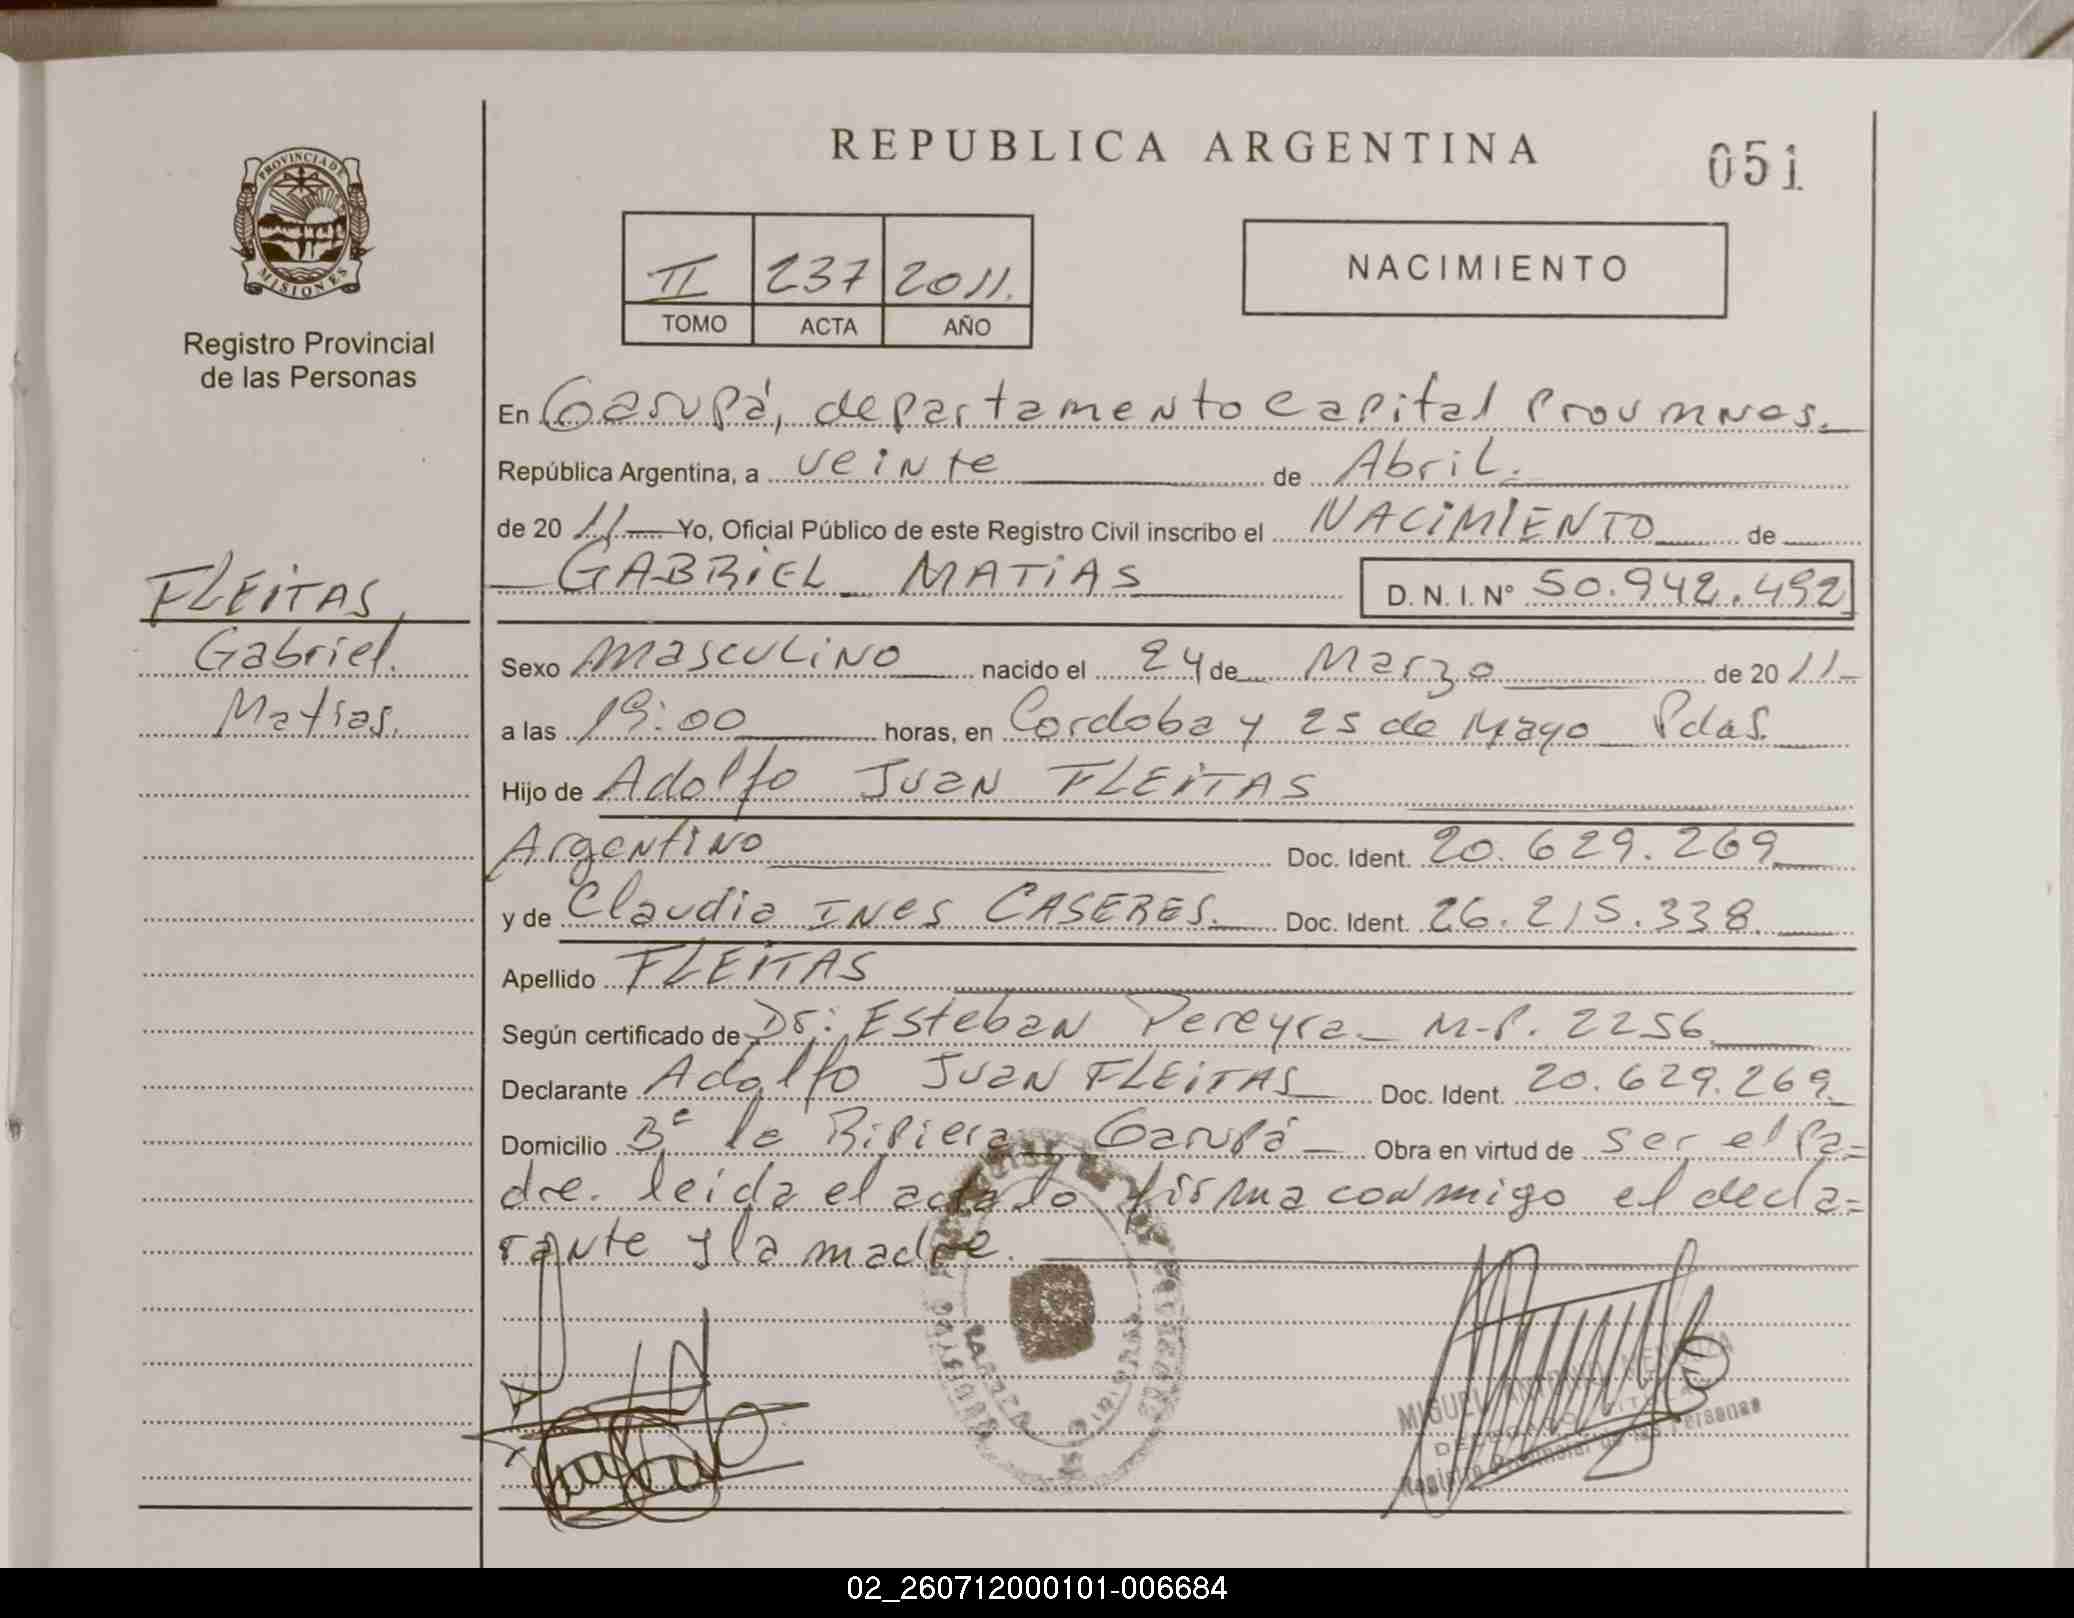 REPUBLICA ARGENTINA
051
PROVINCIA DE
MISIONES
Registro Provincial
de las Personas
II 237 2011.
TOMO ACTA AÑO
NACIMIENTO
En Garupá, departamento Capital Prov mnes.
República Argentina, a veinte de Abril.
de 20 11 Yo, Oficial Público de este Registro Civil inscribo el NACIMIENTO de
GABRIEL MATIAS D. N. I. N° 50.942.492
FLEITAS,
Gabriel.
Matias.
Sexo masculino nacido el 24 de Marzo de 20 11-
a las 19:00 horas, en Cordoba y 25 de Mayo Pdas.
Hijo de Adolfo Juan FLEITAS
Argentino Doc. Ident. 20.629.269
y de Claudia INes CASERES. Doc. Ident. 26.215.338
Apellido FLEITAS
Según certificado de Dr: Esteban Pereyra. M-P. 2256
Declarante Adolfo Juan FLEITAS Doc. Ident. 20.629.269
Domicilio Bº la Ripiera Garupá Obra en virtud de ser el Pa=
dre. leida el acta lo firma conmigo el decla=
rante y la madre.
MIGUEL ANTONIO
Registro Provincial de las Personas
02_260712000101-006684